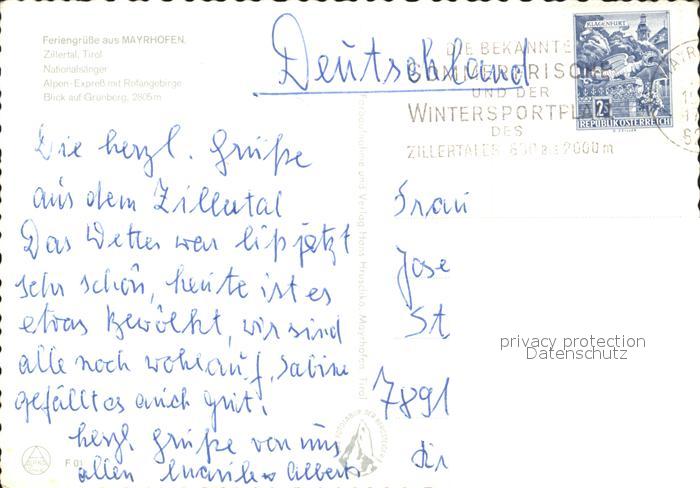 Feriengrüße aus MAYRHOFEN,
Zillertal, Tirol
Nationalsänger
Alpen-Expreß mit Rofangebirge
Blick auf Grünberg, 2805 m
Deutschland
DIE BEKANNTE
SOMMERFRISCHE
UND DER
WINTERSPORTPLA
DES
ZILLERTALES 630 bis 2000m
KLAGENFURT
2S
REPUBLIK ÖSTERREICH
Die herzl. Grüße
aus dem Zillertal
Das Wetter war bis jetzt
sehr schön, heute ist es
etwas bewölkt, wir sind
alle noch wohlauf, Sabine
gefällt es auch gut.
herzl. Grüße von uns
allen Alberts
Frau
Jose
St
7891
privacy protection
Datenschutz
Verlag Hans Hruschka, Mayrhofen, Tirol
F 01